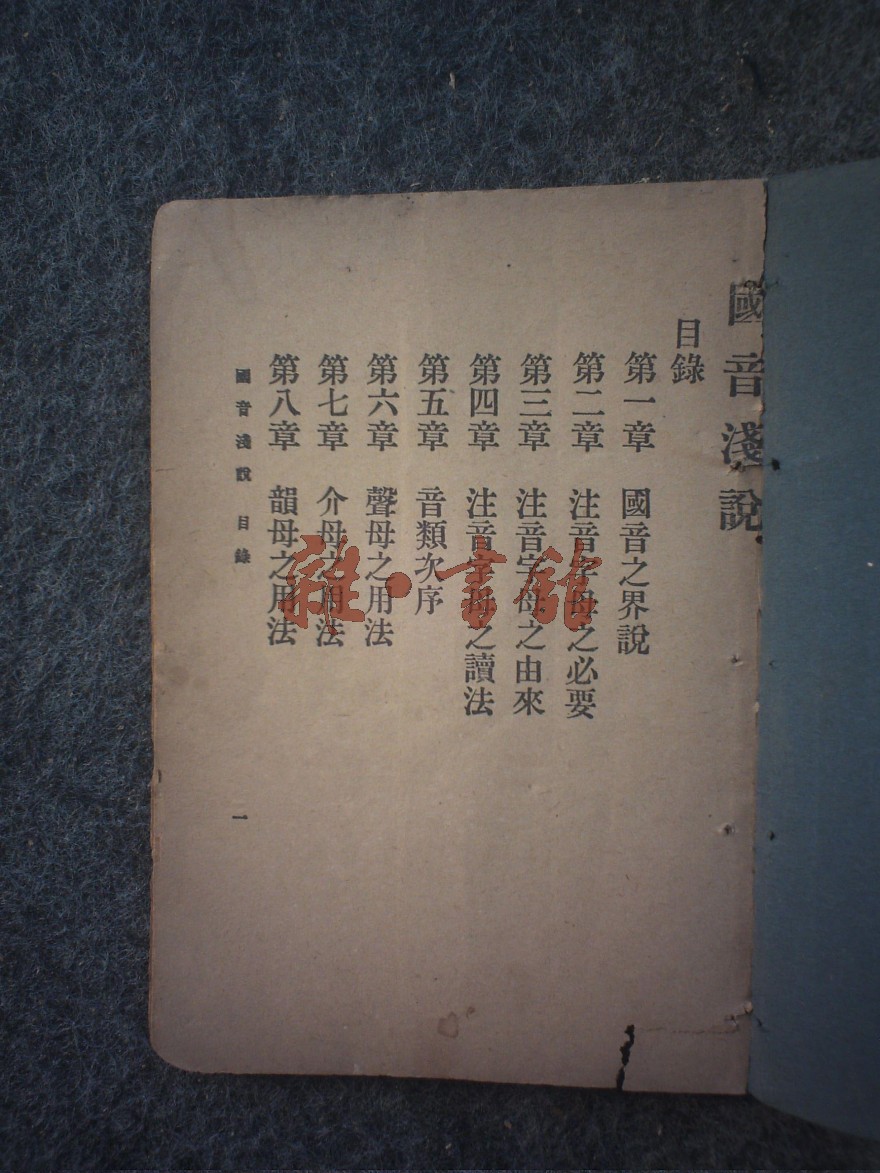 國音淺說
目錄
第一章　國音之界說
第二章　注音字母之必要
第三章　注音字母之由來
第四章　注音字母之讀法
第五章　音類次序
第六章　聲母之用法
第七章　介母之用法
第八章　韻母之用法
國音淺說　目錄　一
雜·書館